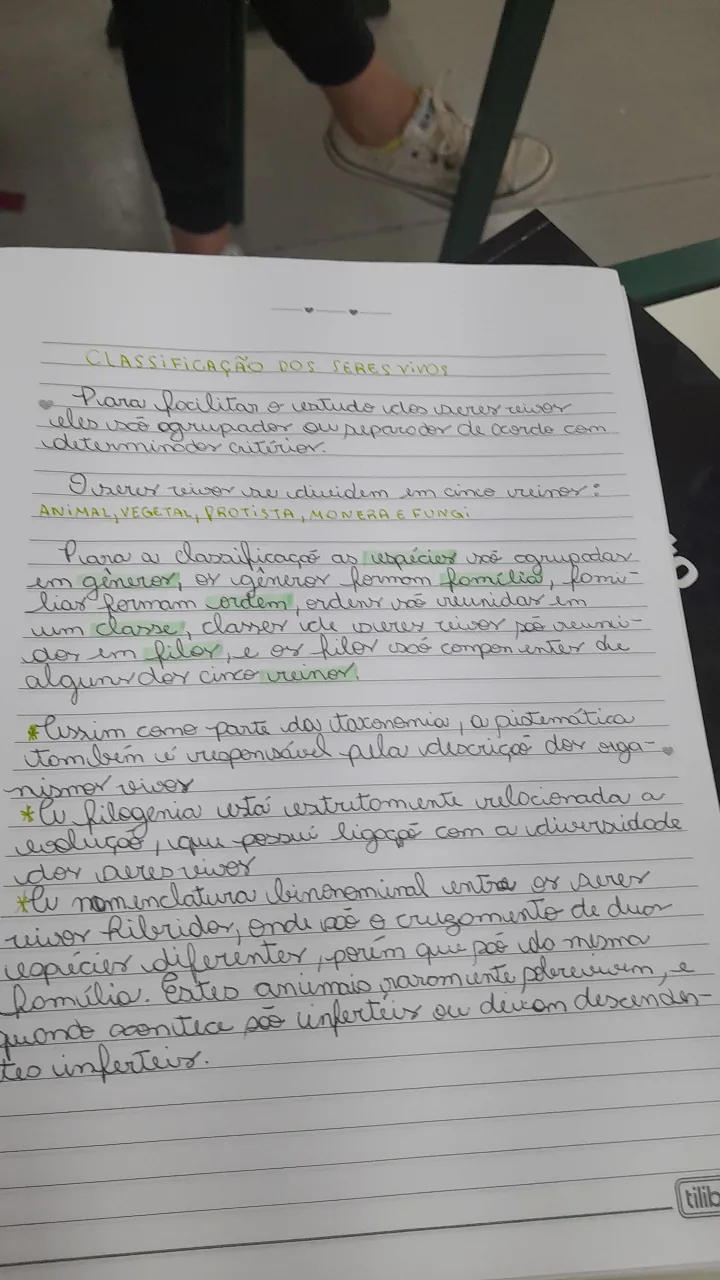 CLASSIFICAÇÃO DOS SERES VIVOS
Para facilitar o estudo dos seres vivos
eles são agrupados ou separados de acordo com
determinados critérios.
O seres vivos se dividem em cinco reinos:
ANIMAL, VEGETAL, PROTISTA, MONERA E FUNGI
Para a classificação as espécies são agrupadas
em gêneros, os gêneros formam família, famí-
lias formam ordem, ordens são reunidas em
um classe, classes de seres vivos são reuni-
dos em filos, e os filos são componentes de
alguns dos cinco reinos.
*Assim como parte da taxonomia, a sistemática
também é responsável pela descrição dos orga-
nismos vivos
*A filogenia está estritamente relacionada a
evolução, que possui ligação com a diversidade
dos seres vivos
*A nomenclatura binonominal entre os seres
vivos híbridos, onde são o cruzamento de duas
espécies diferentes, porém que são da mesma
família. Estes animais raramente sobrevivem, e
quando acontece são inferteis ou deixam descenden-
tes inferteis.
tilib